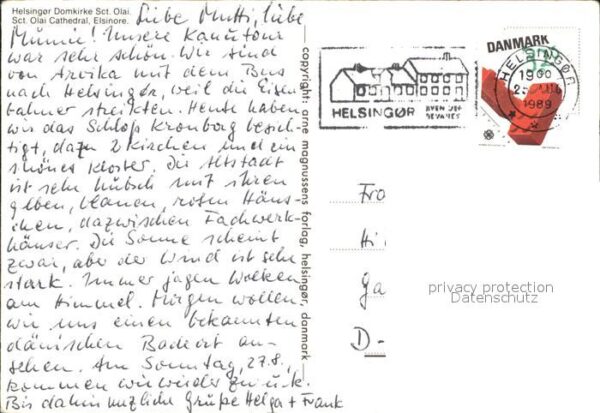 Helsingør Domkirke Sct. Olai.
Sct. Olai Cathedral, Elsinore.
Liebe Mutti, liebe
Mumie! Unsere Kanutour
war sehr schön. Wir sind
von Arvika mit dem Bus
nach Helsingör, weil die Eisen
bahner streikten. Heute haben
wir das Schloß Kronborg besich-
tigt, dazu 2 Kirchen und ein
schönes Kloster. Die Altstadt
ist sehr hübsch mit ihren
gelben, blauen, roten Häus-
chen, dazwischen Fachwerk-
häuser. Die Sonne scheint
zwar, aber der Wind ist sehr
stark. Immer jagen Wolken
am Himmel. Morgen wollen
wir uns einen bekannten
dänischen Badeort an-
sehen. Am Sonntag, 27.8.,
kommen wir wieder zurück.
Bis dahin herzliche Grüße Helga + Frank
copyright: arne magnussens forlag, helsingør, danmark
HELSINGØR
BYEN DER
BEVARES
DANMARK
HELSINGØR
1900
1989
Fra
Hi
Ga
D-
privacy protection
Datenschutz